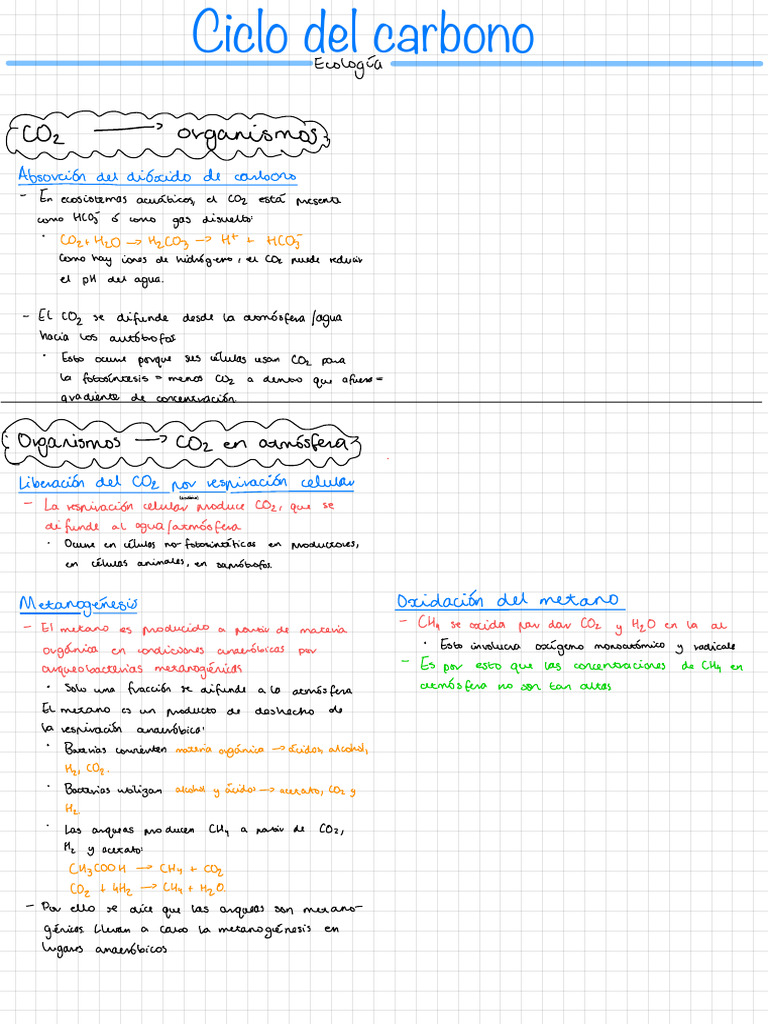 Ciclo del carbono
Ecología
CO2 → organismos
Absorción del dióxido de carbono
- En ecosistemas acuáticos, el CO2 está presente
como HCO3⁻ ó como gas disuelto:
· CO2 + H2O → H2CO3 → H⁺ + HCO3⁻
Como hay iones de hidrógeno, el CO2 puede reducir
el pH del agua.
- El CO2 se difunde desde la atmósfera/agua
hacia los autótrofos
· Esto ocurre porque sus células usan CO2 para
la fotosíntesis = menos CO2 a dentro que afuera =
gradiente de concentración
Organismos → CO2 en atmósfera
Liberación del CO2 por respiración celular
- La respiración celular produce CO2, que se
difunde al agua/atmósfera
· Ocurre en células no-fotosintéticas en productores,
en células animales, en saprótrofos.
Metanogénesis
- El metano es producido a partir de materia
orgánica en condiciones anaeróbicas por
arqueobacterias metanogénicas
· Solo una fracción se difunde a la atmósfera
El metano es un producto de deshecho de
la respiración anaeróbica:
· Bacterias convierten materia orgánica → ácidos, alcohol,
H2, CO2.
· Bacterias utilizan alcohol y ácidos → acetato, CO2 y
H2
· Las arqueas producen CH4 a partir de CO2,
H2 y acetato:
CH3COOH → CH4 + CO2
CO2 + 4H2 → CH4 + H2O.
- Por ello se dice que las arqueas son metano-
génicas. Llevan a cabo la metanogénesis en
lugares anaeróbicos
Oxidación del metano
- CH4 se oxida par dar CO2 y H2O en la at
· Esto involucra oxígeno monoatómico y radicale
- Es por esto que las concentraciones de CH4 en
atmósfera no son tan altas